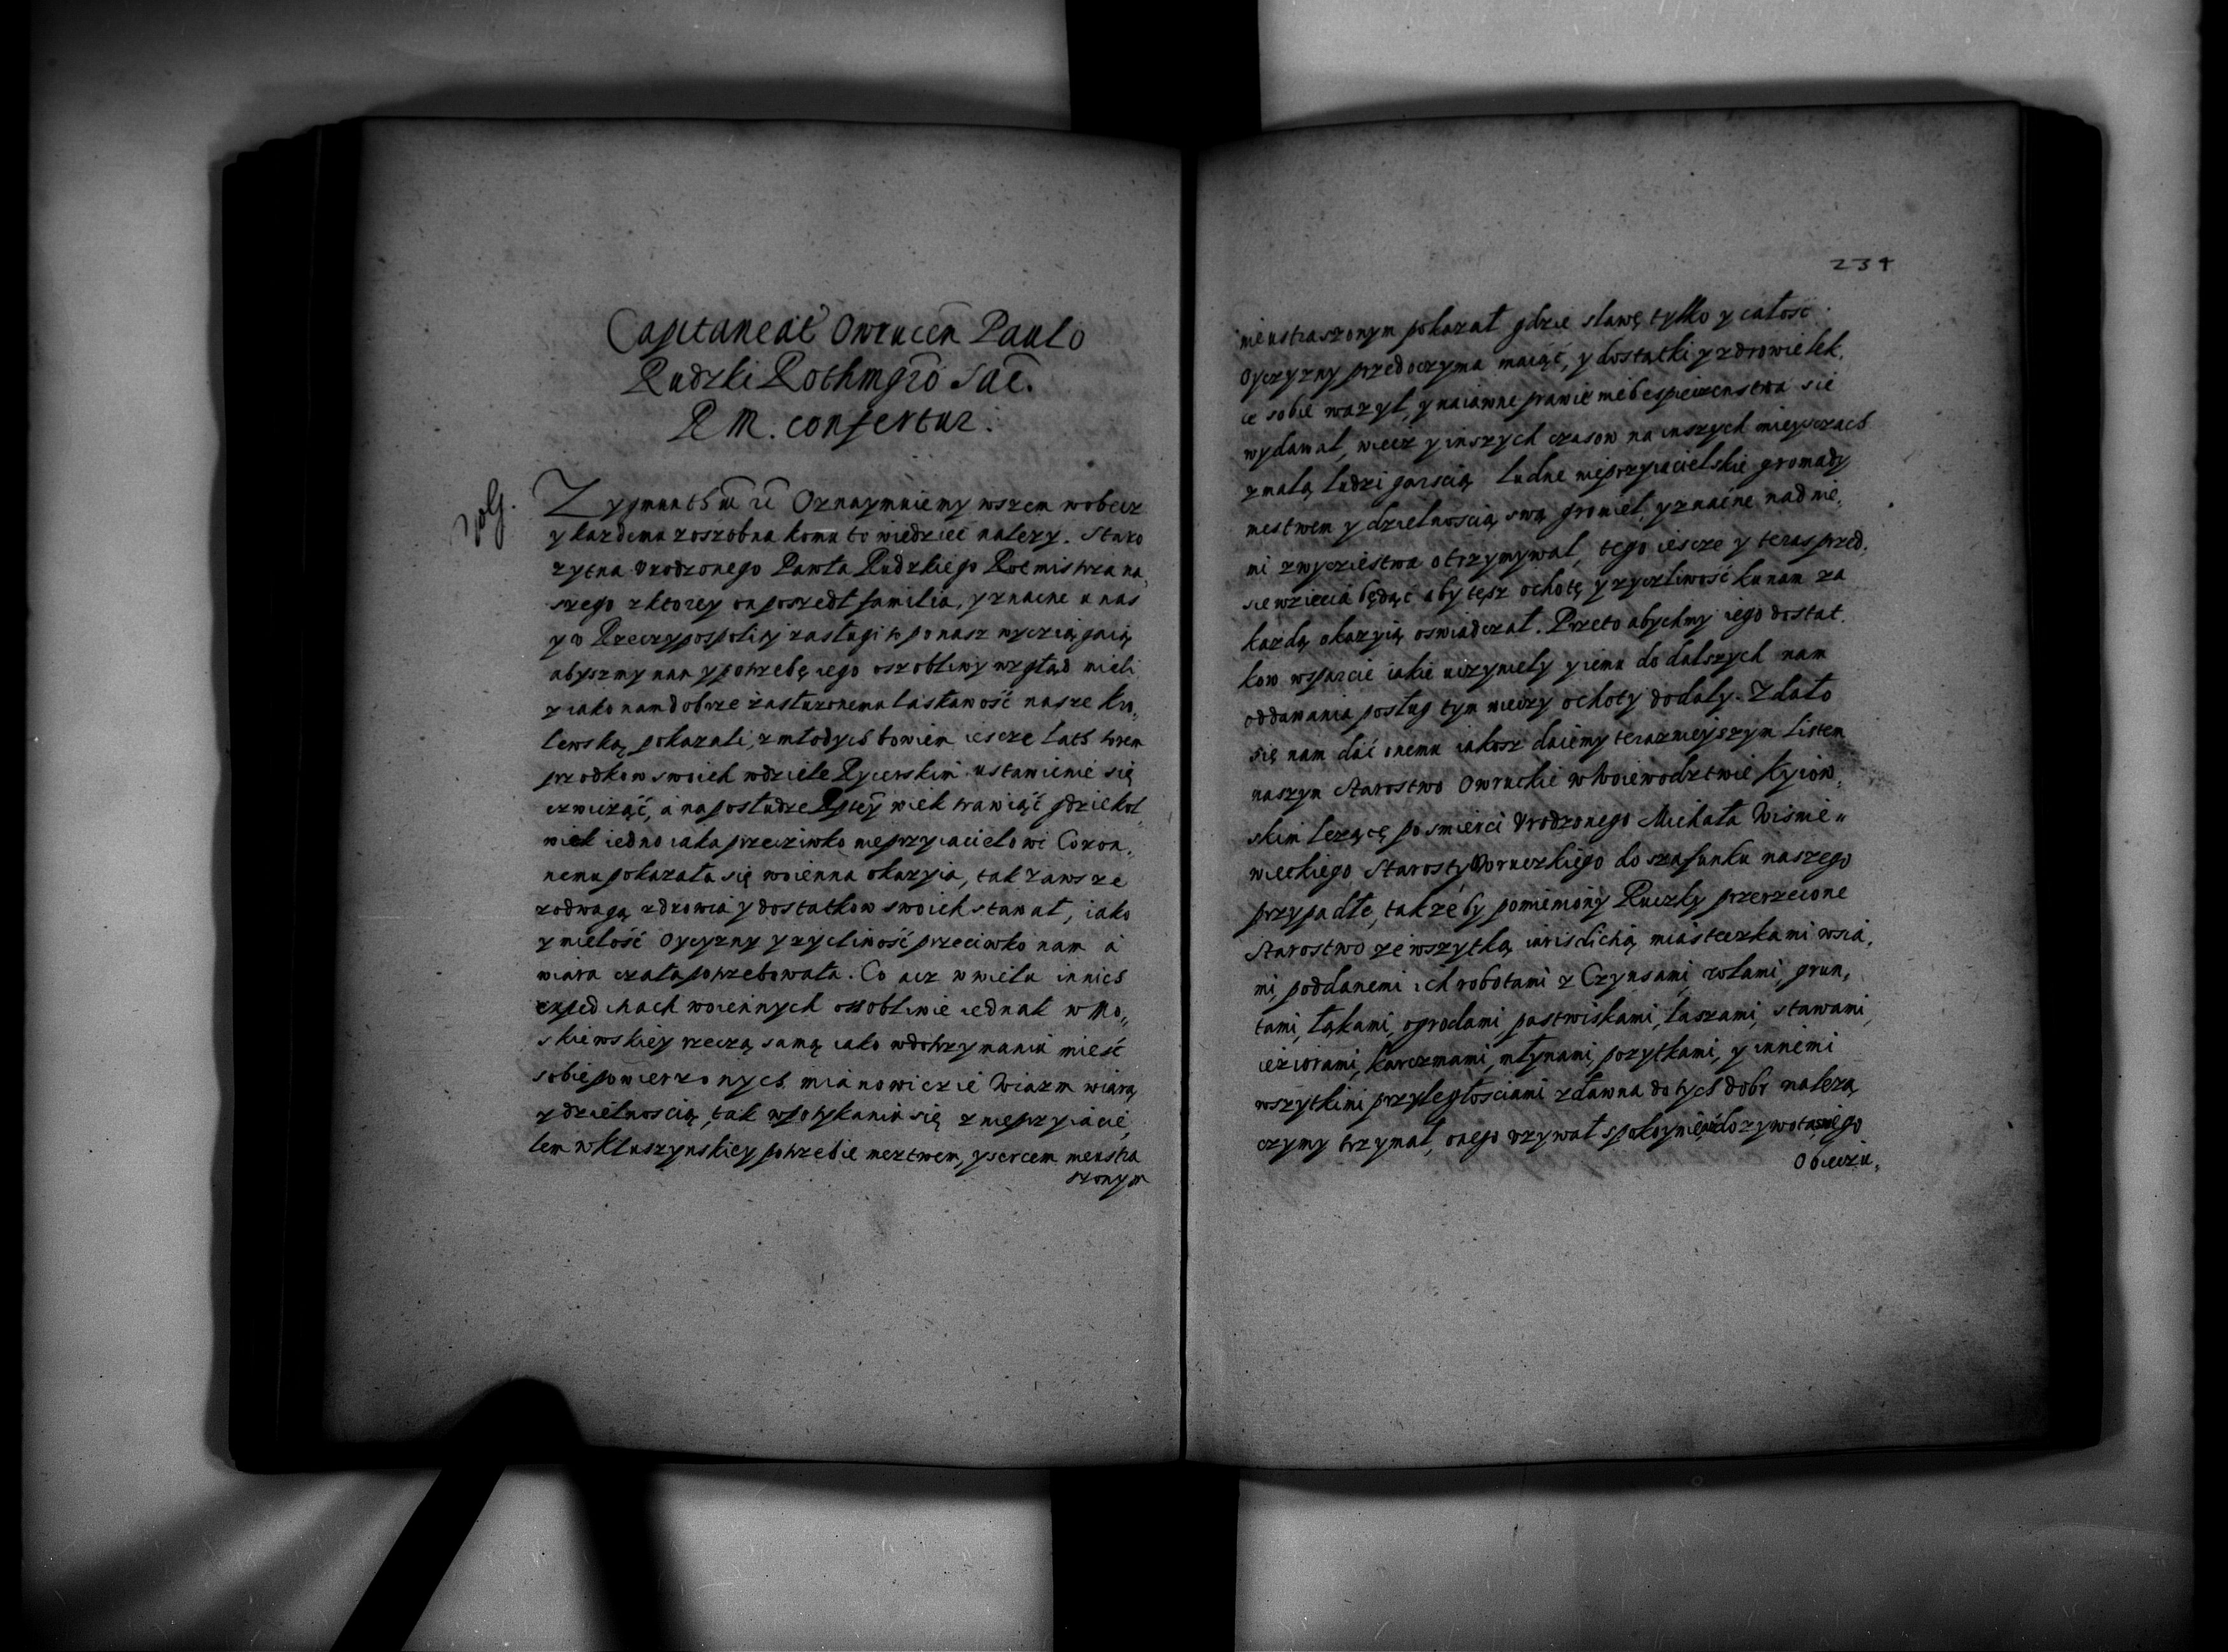 Capitaneat Owrucen Paulo
Rudzki Rothmgro Sac.
R M. confertur.
Zygmunth III etc Oznaymuiemy wszem wobecz
y kazdemu zoszobna komu to wiedzieć nalezy. Staro
zytna Vrodzonego Pawła Rudzkiego Rotmistrza na,
szego z ktorey on poszedł familia, y znacne u nas
y w Rzeczypospolitej zasługi to po nasz wyciągaią
abyszmy nan y potrzebę iego oszobliwy wzgląd mieli
y iako nam dobrze zasłuzonemu łaskawość nasze Kro,
lewską pokazali, z młodych bowiem iescze lath torem
przodkow swoich wdziele Rycerskim ustawicnie się
czwicząć, a na posłudze Rptey wiek trawiąć gdziekol,
wiek iedno iaka przeciwko nieprzyiacielowi Coron,
nemu pokazała się woienna okazyia, tak zawsze
zodwagą zdrowia y dostatkow swoich stawał, iako
y miełość Oyczyzny y zycliwość przeciwko nam a
wiara czała potrzebowała. Co acz w wielu innich
expedichach woiennych ossobliwie iednak w Mo,,
skiewskiey rzeczą samą iako wdotrzymaniu mieść
sobie powierzonych mianowiczie Wiazm wiarą
y dzielnoscią, tak wpotykaniu się z nieprzyiacie,
lem w Kłuszynskiey potrzebie meztwem, y sercem nieustra
szonym
234
nieustraszonym pokazał gdzie sławę tylko y całość
Oyczyzny przed oczyma maiąć, y dostatki y zdrowie lek,
ce sobie wazył, y na iawne prawie niebespieczenstwa sie
wydawał, wiecz y inszych czasow na inszych mieyszcach
z małą ludzi garscią ludne nieprzyiacielskie gromady
mestwem y dzielnoscią swą gromieł, y znacne nad nie,
mi zwycziestwa otrzymywał, tego iescze y teras przed,
sie wziecia będąć aby tęsz ochotę y zyczliwość ku nam za
kazdą okazyią oswiadczał. Przeto abychmy iego dostat,
kow wsparcie iakie uczyniely y iemu do dalszych nam
oddawania posług tym wieczy ochoty dodaly. Zdało
się nam dać onemu iakosz daiemy terazniejszym listem
naszym Starostwo Owruckie w Woiewodztwie Kyiow,
skim lezącę po smierci Vrodzonego Michała Wisnie,,
wieckiego Starosty Owruczkiego do szafunku naszego
przypadłe, tak ze by pomieniony Ruczky przerzecione
Starostwo ze wszytką iurisdichą miasteczkami wsia,
mi, poddanemi ich robotami z Czynsami, rolami, grun,
tami, łąkami, ogrodami, pastwiskami, laszami, stawami,
ieziorami, karczmami, młynami, pozytkami, y innemi
wszytkimi przyległościami zdawna do tych dobr nalezą
czymy trzymał, onego vzywał spokoynie do zywota swego
Obieczu,